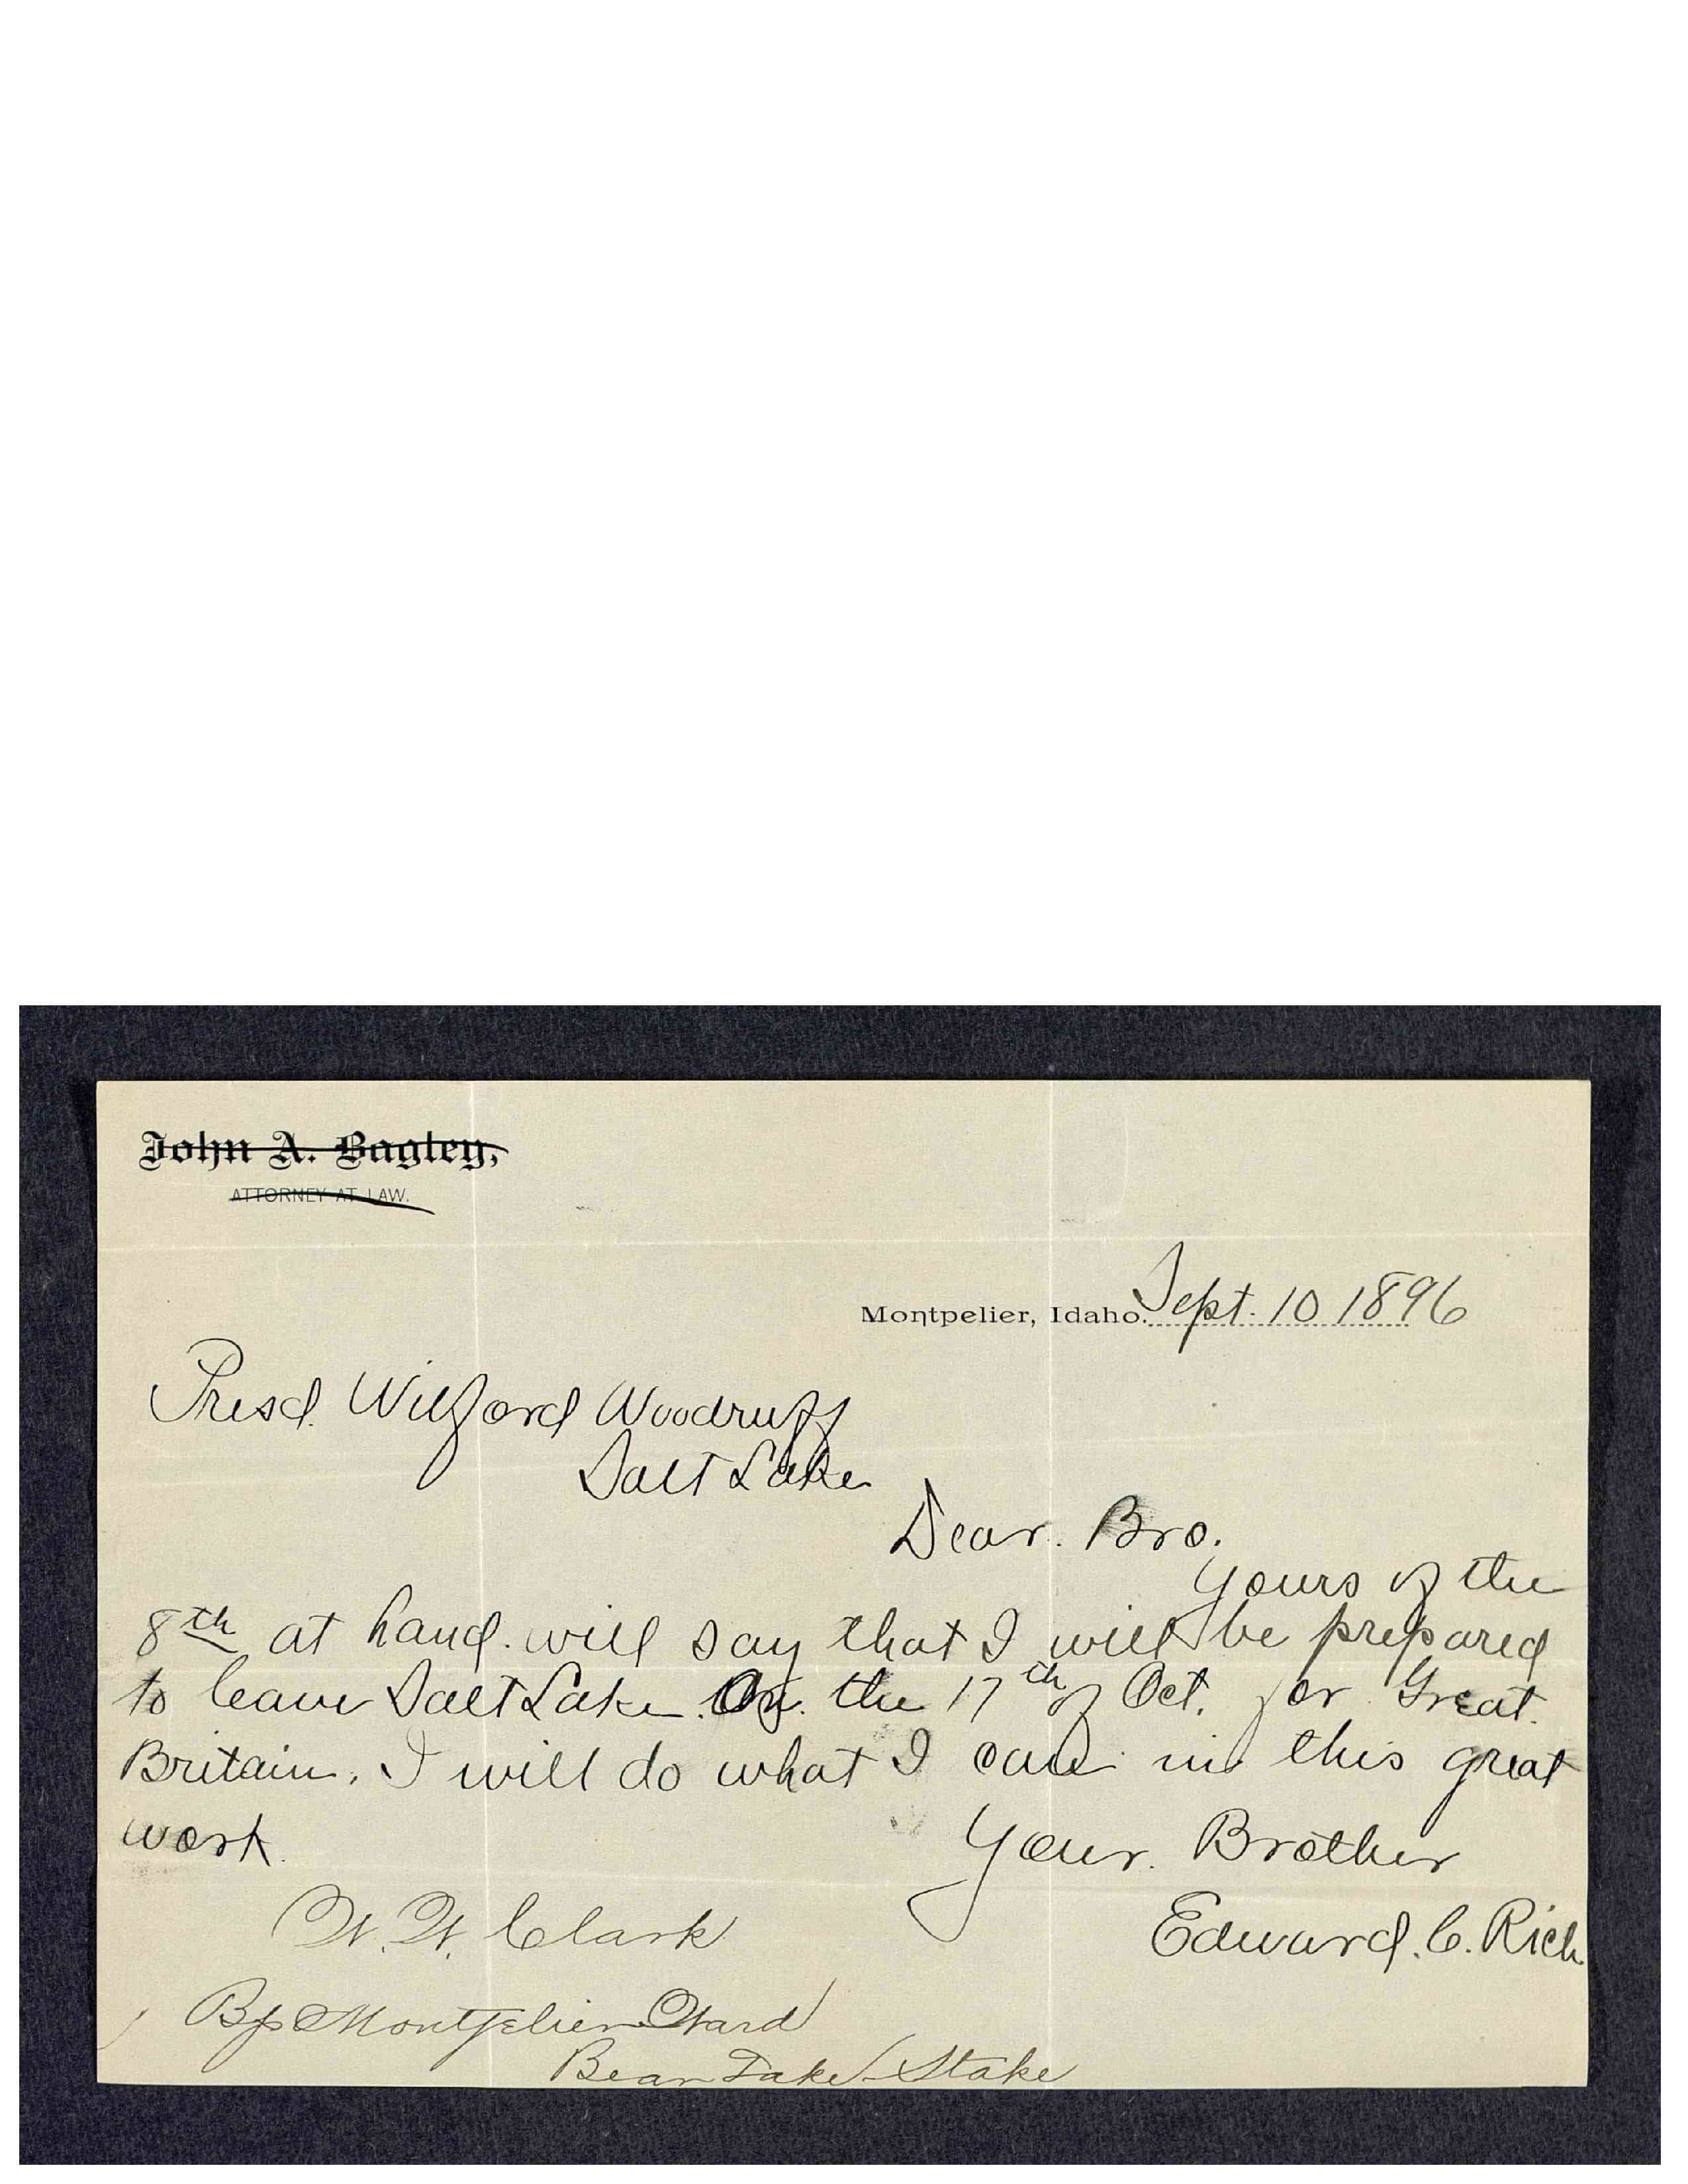 John A. Bagley,
ATTORNEY AT LAW.
Montpelier, Idaho. Sept. 10 1896
Presd. Wilford Woodruff
Salt Lake
Dear. Bro.
Yours of the
8th at hand. will say that I will be prepared
to leave Salt Lake. On. the 17th of Oct. for Great.
Britain. I will do what I can in this great
work.
Your. Brother
W. W. Clark
Edward. C. Rich
Bp Montpelier Ward
Bear Lake Stake